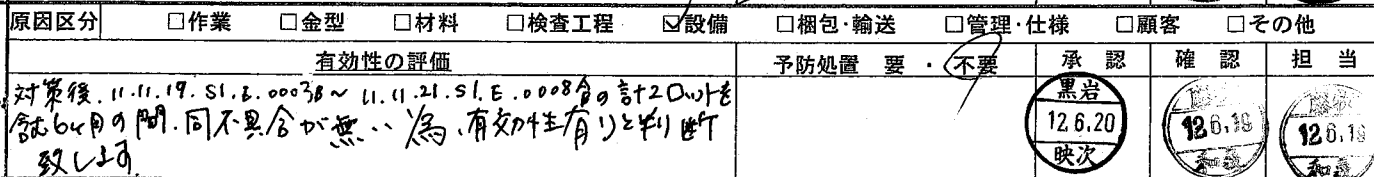 原因区分 □作業 □金型 □材料 □検査工程 ☑設備 □梱包・輸送 □管理・仕様 □顧客 □その他
有効性の評価 予防処置 要 ・ 不要 承認 確認 担当
対策後、11.11.19. S1.E.0003B～11.11.21.S1.E.0008合の計2ロットを
含む6ヶ月の間、同不具合が無い為、有効性有りと判断
致します。
黒岩
12.6.20
映次
12.6.19
12.6.19